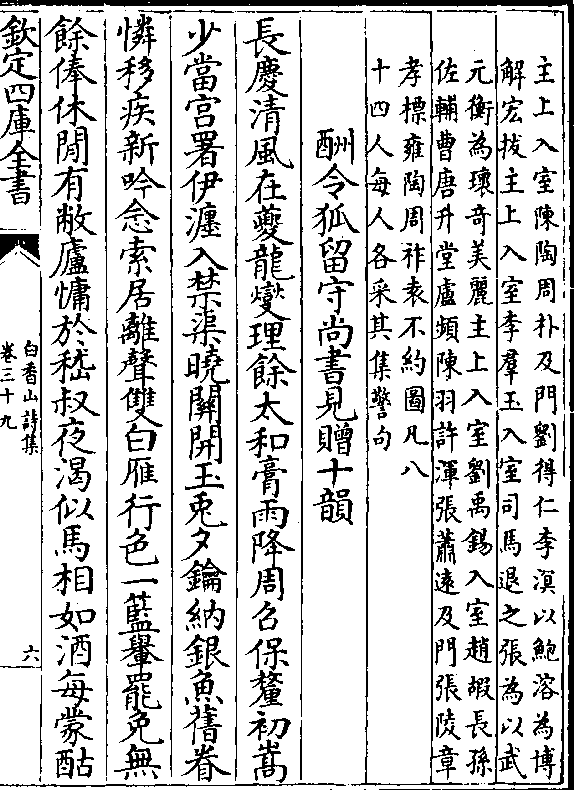 主上入室陳陶周朴及門劉得仁李溟以鮑溶為博
解宏拔主上入室李羣玉入室司馬退之張為以武
元衡為瓌奇美麗主上入室劉禹錫入室趙嘏長孫
佐輔曹唐升堂盧頻陳羽許渾張蕭逺及門張陵章
孝標雍陶周祚袁不約圖凡八
十四人每人各采其集警句
酬令狐留守尚書見贈十韻
長慶清風在夔龍燮理餘太和膏雨降周召保釐初嵩
少當宫署伊瀍入禁渠曉闗開玉兎夕鑰納銀魚舊眷
憐移疾新吟念索居離聲雙白雁行色一藍轝罷免無
餘俸休閒有敝廬慵於嵇叔夜渇似馬相如酒每蒙酤
欽定四庫全書
白香山詩集
卷三十九
六